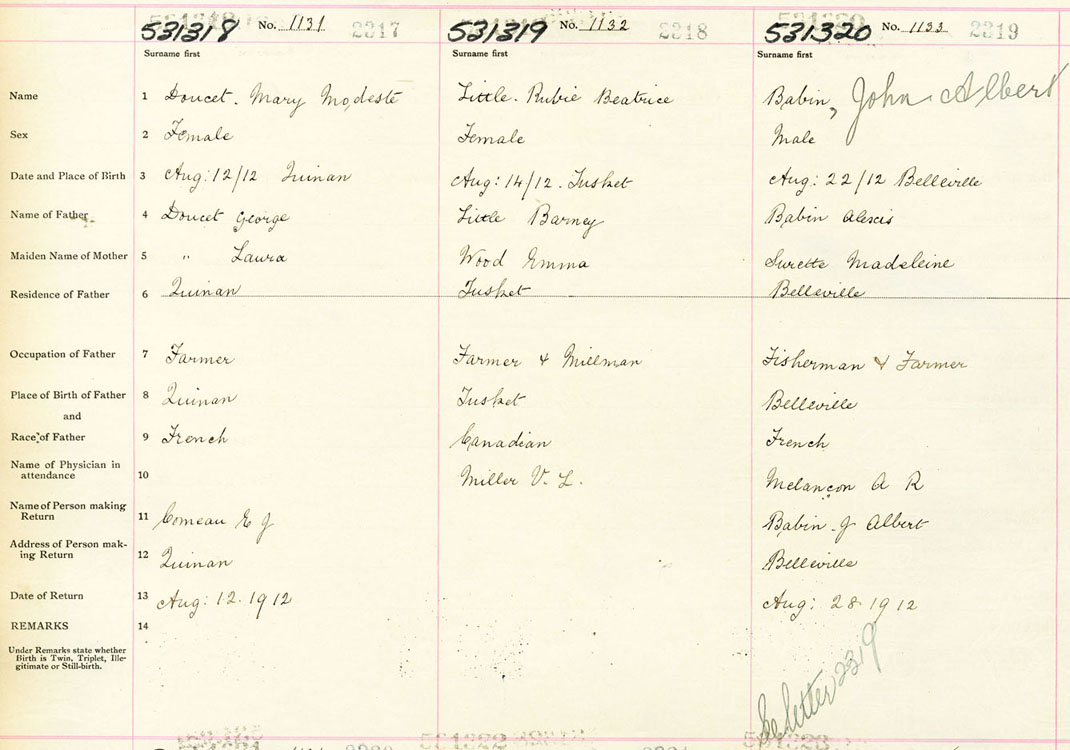 531318 No. 1131 2317 531319 No. 1132 2318 531320 No. 1133 2319
Surname first Surname first Surname first
Name 1 Doucet. Mary Modeste Little. Rubie Beatrice Babin, John Albert
Sex 2 Female Female Male
Date and Place of Birth 3 Aug: 12/12 Quinan Aug: 14/12. Tusket Aug: 22/12 Belleville
Name of Father 4 Doucet George Little Barney Babin Alexis
Maiden Name of Mother 5 " Laura Wood Emma Surette Madeleine
Residence of Father 6 Quinan Tusket Belleville
Occupation of Father 7 Farmer Farmer & Millman Fisherman & Farmer
Place of Birth of Father 8 Quinan Tusket Belleville
and
Race of Father 9 French Canadian French
Name of Physician in
attendance 10 Miller V. L. Melançon A R
Name of Person making
Return 11 Comeau E J Babin J Albert
Address of Person mak-
ing Return 12 Quinan Belleville
Date of Return 13 Aug: 12. 1912 Aug: 28 1912
REMARKS 14
Under Remarks state whether
Birth is Twin, Triplet, Ille-
gitimate or Still-birth.
See letter 2319
531322